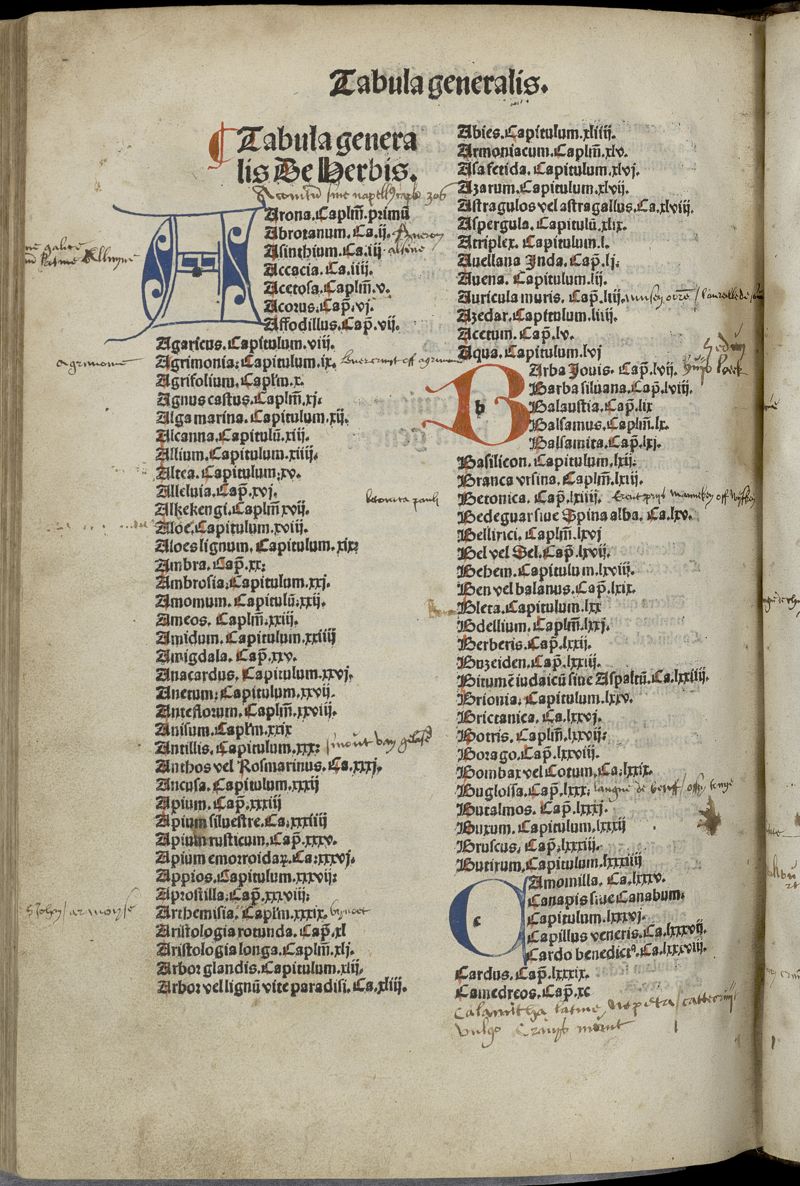 Tabula generalis.
Tabula genera
lis De Herbis.
Arona. Caplm̄. primū
Abrotanum. Ca. ij.
Asinthium. Ca. iij
Accacia. Ca. iiij.
Acetosa. Caplm̄. v.
Acorus. Cap̄. vj.
Affodillus. Cap̄. vij.
Agaricus. Capitulum. viij.
agrimonie
Agrimonia. Capitulum. ix.
Agrifolium. Caplm̄. x.
Agnus castus. Caplm̄. xj.
Alga marina. Capitulum. xij.
Alcanna. Capitulū. xiij.
Allium. Capitulum. xiiij.
Altea. Capitulum. xv.
Alleluia. Cap̄. xvj.
Alkekengi. Caplm̄ xvij.
Aloe. Capitulum. xviij.
Aloes lignum. Capitulum. xix.
Ambra. Cap̄. xx.
Ambrosia. Capitulum. xxj.
Amomum. Capitulū. xxij.
Ameos. Caplm̄. xxiij.
Amidum. Capitulum. xxiiij
Amigdala. Cap̄. xxv.
Anacardus. Capitulum. xxvj.
Anetum. Capitulum. xxvij.
Antestorum. Caplm̄. xxviij.
Anisum. Caplm̄ xxix
Antillis. Capitulum. xxx.
Anthos vel Rosmarinus. Ca. xxxj.
Ancusa. Capitulum. xxxij
Apium. Cap̄. xxxiij
Apium siluestre. Ca. xxxiiij
Apium rusticum. Cap̄. xxxv.
Apium emorroidaꝝ. Ca. xxxvj.
Appios. Capitulum. xxxvij.
Aprostilla. Cap̄. xxxviij.
Arthemisia. Caplm̄. xxxix. byvoet
Aristologia rotunda. Cap̄. xl
Aristologia longa. Caplm̄. xlj.
Arbor glandis. Capitulum. xlij.
Arbor vel lignū vite paradisi. Ca. xliij.
Abies. Capitulum. xliiij.
Armoniacum. Caplm̄. xlv.
Asa fetida. Capitulum. xlvj.
Azarum. Capitulum. xlvij.
Astragulos vel astragallus. Ca. xlviij.
Aspergula. Capitulū. xlix.
Atriplex. Capitulum. l.
Auellana Inda. Cap̄. lj.
Auena. Capitulum. lij.
Auricula muris. Cap̄. liij.
Azedar. Capitulum. liiij.
Acetum. Cap̄. lv.
Aqua. Capitulum. lvj
b
BArba Jouis. Cap̄. lvij.
Barba siluana. Cap̄. lviij.
Balaustia. Cap̄. lix
Balsamus. Caplm̄. lx.
Balsamita. Cap̄. lxj.
Basilicon. Capitulum. lxij.
Branca vrsina. Caplm̄. lxiij.
betonica pauli
Betonica. Cap̄. lxiiij.
Bedeguar siue Spina alba. Ca. lxv.
Bellirici. Caplm̄. lxvj
Bel vel Sel. Cap̄. lxvij.
Behem. Capitulum. lxviij.
Ben vel balanus. Cap̄. lxix.
Bleta. Capitulum. lxx
Bdellium. Caplm̄. lxxj.
Berberis. Cap̄. lxxij.
Buzeiden. Cap̄. lxxiij.
Bitumē iudaicū siue Aspaltū. Ca. lxxiiij.
Brionia. Capitulum. lxxv.
Brictanica. Ca. lxxvj.
Botris. Caplm̄. lxxvij.
Borago. Cap̄. lxxviij.
Bombax vel Cotum. Ca. lxxix.
Buglossa. Cap̄. lxxx. langue de beuf
Butalmos. Cap̄. lxxxj.
Buxum. Capitulum. lxxxij
Bruscus. Cap̄. lxxxiij.
Butirum. Capitulum. lxxxiiij
c
CAmomilla. Ca. lxxxv.
Canapis siue Canabum.
Capitulum. lxxxvj.
Capillus veneris. Ca. lxxxvij.
Cardo benedictꝰ. Ca. lxxxviij.
Cardus. Cap̄. lxxxix.
Camedreos. Cap̄. xc
Calamintha latine, nepeta
vulgo